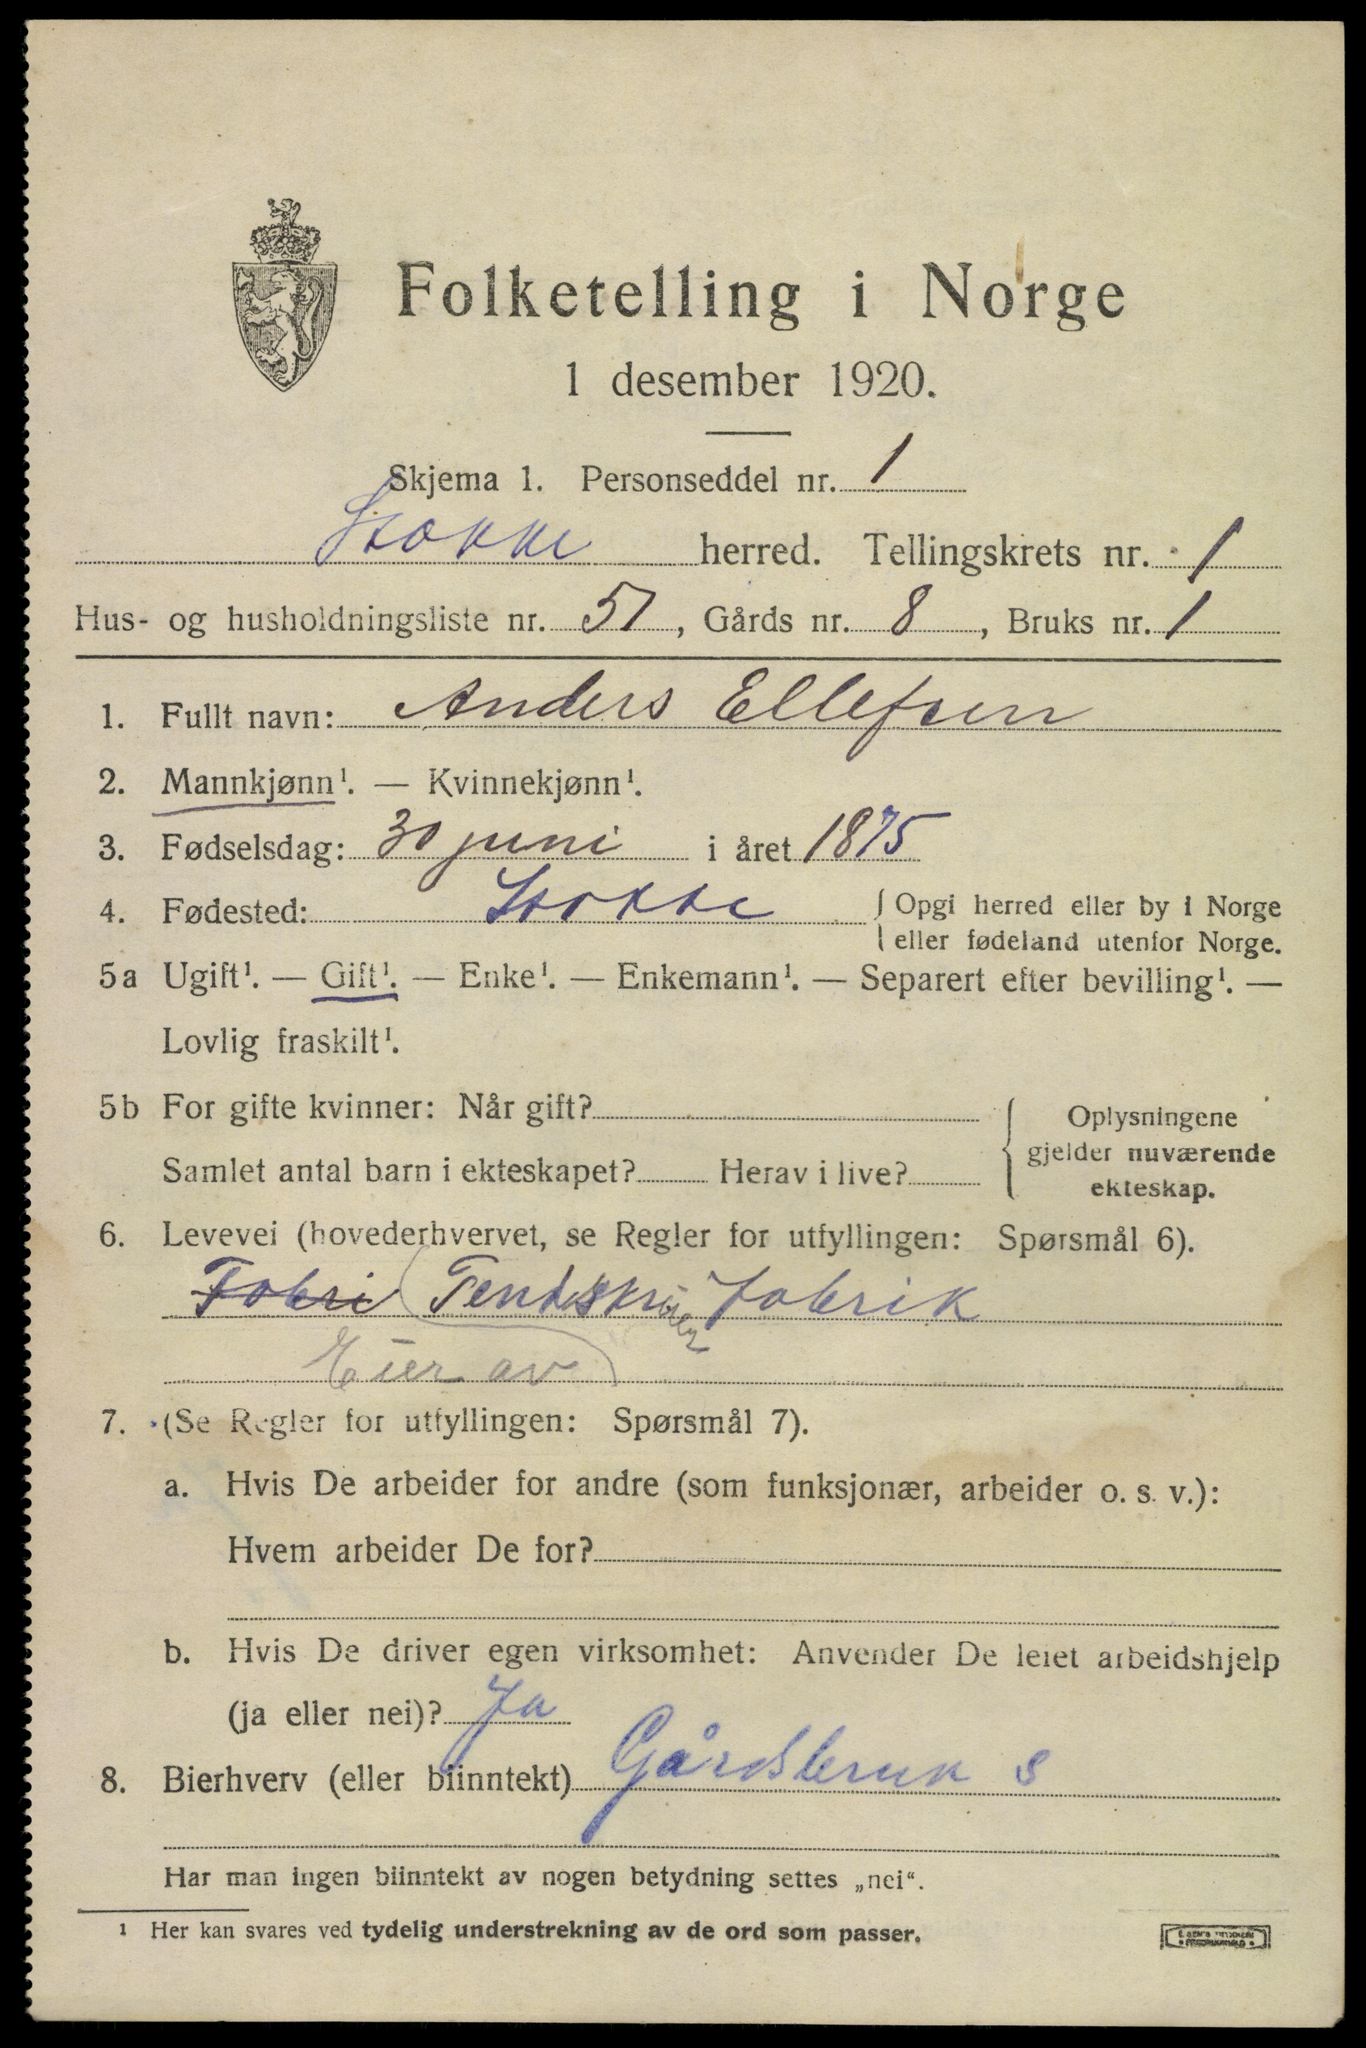 Folketelling i Norge
1 desember 1920.
Skjema 1. Personseddel nr. 1
Stokke herred. Tellingskrets nr. 1
Hus- og husholdningsliste nr. 51, Gårds nr. 8, Bruks nr. 1
1. Fullt navn: Anders Ellefsen
2. Mannkjønn¹. — Kvinnekjønn¹.
3. Fødselsdag: 30 juni i året 1875
4. Fødested: Stokke { Opgi herred eller by i Norge
eller fødeland utenfor Norge.
5a Ugift¹. — Gift¹. — Enke¹. — Enkemann¹. — Separert efter bevilling¹. —
Lovlig fraskilt¹.
5b For gifte kvinner: Når gift? { Oplysningene
gjelder nuværende
Samlet antal barn i ekteskapet? Herav i live?
ekteskap.
6. Levevei (hovederhvervet, se Regler for utfyllingen: Spørsmål 6).
Fabri fabrik
Eier av
7. (Se Regler for utfyllingen: Spørsmål 7).
a. Hvis De arbeider for andre (som funksjonær, arbeider o. s. v.):
Hvem arbeider De for?
b. Hvis De driver egen virksomhet: Anvender De leiet arbeidshjelp
(ja eller nei)? Ja
8. Bierhverv (eller biinntekt) Gårdsbruk s
Har man ingen biinntekt av nogen betydning settes „nei“.
¹ Her kan svares ved tydelig understrekning av de ord som passer.